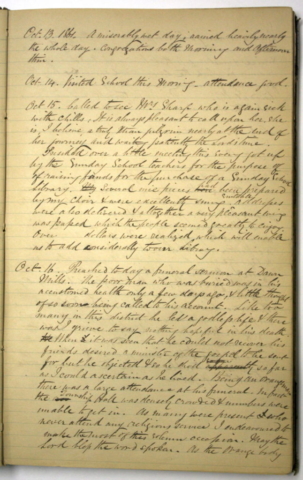 Oct. 13. A miserably wet day, rained heavily nearly
the whole day. Congregations both Morning and Afternoon
thin.
Oct. 14. Visited School this Morning. attendance good.
Oct 15. Called to see Mrs Sharp who is again sick
with chills. It is always pleasant to call upon her. She
is, I believe, a truly pilgrim nearly at the end of
her journey and waiting patiently the end
Presided over a meeting this evening got up
by the Sunday School teachers for the purpose of
of raising funds for the purchase of a Sunday School
Library. Several nice pieces had been prepared
by my Choir & were excellently sung. Addresses
were also delivered & altogether a very pleasant evening
was passed which the people seemed greatly to enjoy
Over dollars were realized, which will enable
us to add considerably to our Library.
Oct. 16. Preached to day a funeral sermon at
Mills. The poor man who was buried was in his
accustomed health only a few days ago, & little thought
of so soon being called to his account. Like too
many in this district he led a godless life & there
was I grieve to say nothing hopeful in his death
When it was seen that he could not recover his
friends desired a minister of the gospel to be sent
for but he objected & so he died so far
as I could ascertain as he lived. Being an Orangeman
there was a large attendance at his funeral. In fact
the Hall was densely crowded & numbers were
unable to get in. As many were present who
never attend any religious service I endeavoured to
make the most of this solemn occasion. May the
Lord bless the word spoken. As the Orange body